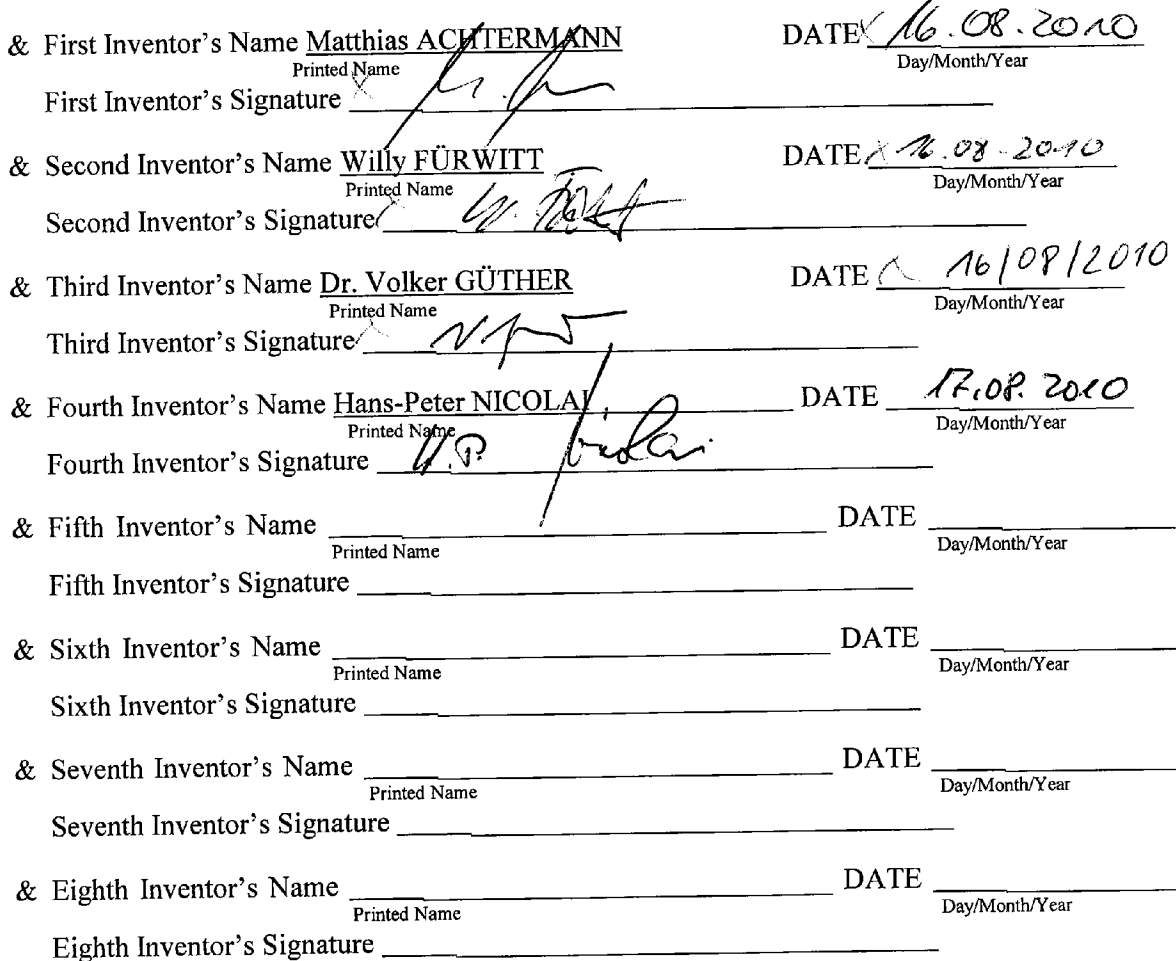 & First Inventor's Name Matthias ACHTERMANN DATE 16.08.2010
Printed Name Day/Month/Year
First Inventor's Signature
& Second Inventor's Name Willy FÜRWITT DATE 16.08.2010
Printed Name Day/Month/Year
Second Inventor's Signature
& Third Inventor's Name Dr. Volker GÜTHER DATE 16/08/2010
Printed Name Day/Month/Year
Third Inventor's Signature
& Fourth Inventor's Name Hans-Peter NICOLAI, DATE 17.08.2010
Printed Name Day/Month/Year
Fourth Inventor's Signature H.P. Nicolai
& Fifth Inventor's Name DATE
Printed Name Day/Month/Year
Fifth Inventor's Signature
& Sixth Inventor's Name DATE
Printed Name Day/Month/Year
Sixth Inventor's Signature
& Seventh Inventor's Name DATE
Printed Name Day/Month/Year
Seventh Inventor's Signature
& Eighth Inventor's Name DATE
Printed Name Day/Month/Year
Eighth Inventor's Signature